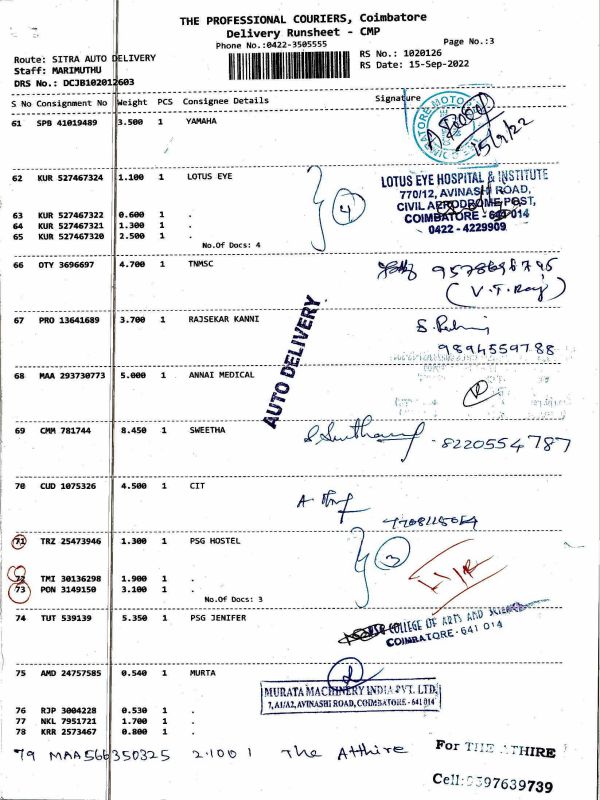 THE PROFESSIONAL COURIERS, Coimbatore
Delivery Runsheet - CMP
Phone No.:0422-3505555
Page No.:3
Route: SITRA AUTO DELIVERY
RS No.: 1020126
Staff: MARIMUTHU
RS Date: 15-Sep-2022
DRS No.: DCJB102012603
S No Consignment No Weight PCS Consignee Details Signature
61 SPB 41019489 3.500 1 YAMAHA
15/9/22
62 KUR 527467324 1.100 1 LOTUS EYE
4
LOTUS EYE HOSPITAL & INSTITUTE
770/12, AVINASHI ROAD,
CIVIL AERODROME POST,
COIMBATORE - 641 014
0422 - 4229909
63 KUR 527467322 0.600 1 .
64 KUR 527467321 1.300 1 .
65 KUR 527467320 2.500 1 .
No.Of Docs: 4
66 OTY 3696697 4.700 1 TNMSC
(V.T. Raj)
67 PRO 13641689 3.700 1 RAJSEKAR KANNI
9894559788
AUTO DELIVERY
68 MAA 293730773 5.000 1 ANNAI MEDICAL
69 CMM 781744 8.450 1 SWEETHA
8220554787
70 CUD 1075326 4.500 1 CIT
71 TRZ 25473946 1.300 1 PSG HOSTEL
3
72 TMI 30136298 1.900 1 .
73 PON 3149150 3.100 1 .
No.Of Docs: 3
74 TUT 539139 5.350 1 PSG JENIFER
COLLEGE OF ARTS AND SCIENCE
COIMBATORE - 641 014
75 AMD 24757585 0.540 1 MURTA
MURATA MACHINERY INDIA PVT. LTD.
7, A1/A2, AVINASHI ROAD, COIMBATORE - 641 014
76 RJP 3004228 0.530 1 .
77 NKL 7951721 1.700 1 .
78 KRR 2573467 0.800 1 .
79 MAA566350325 2.100 1 The Atthire
For THE ATHIRE
Cell:9597639739